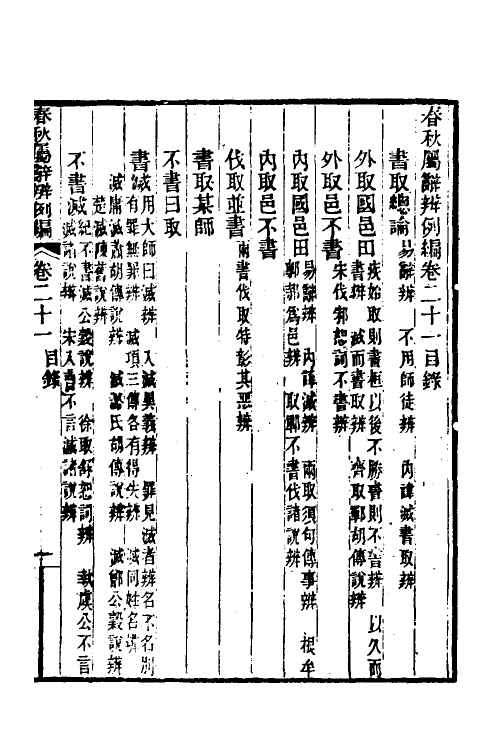 春秋屬辭辨例編卷二十一目錄
書取總論 易辭辨 不用師徒辨 內諱滅書取辨
外取國邑田 疾始取則書桓以後不勝書則不書辨 以久而
書辨 滅而書取辨 齊取鄆胡傳說辨
外取邑不書 宋伐邾恕詞不書辨
內取國邑田 易辭辨 內諱滅辨 兩取須句傳事辨 根牟
鄟邿爲邑辨 取鄆不書伐諸說辨
內取邑不書
伐取並書 兩書伐取特彰其惡辨
書取某師
不書曰取
書滅 用大師曰滅辨 入滅異義辨 罪見滅者辨 名不名別
有罪無罪辨 滅項三傳各有得失辨 滅同姓名辨
滅庸滅蕭胡傳說辨 滅潞氏胡傳說辨 滅鄫公穀說辨
楚滅陳蔡說辨
不書滅 滅紀不書滅公穀說辨 徐取舒恕詞辨 執虞公不言
滅諸說辨 宋入曹不言滅諸說辨
春秋屬辭辨例編 卷二十一 目錄 一